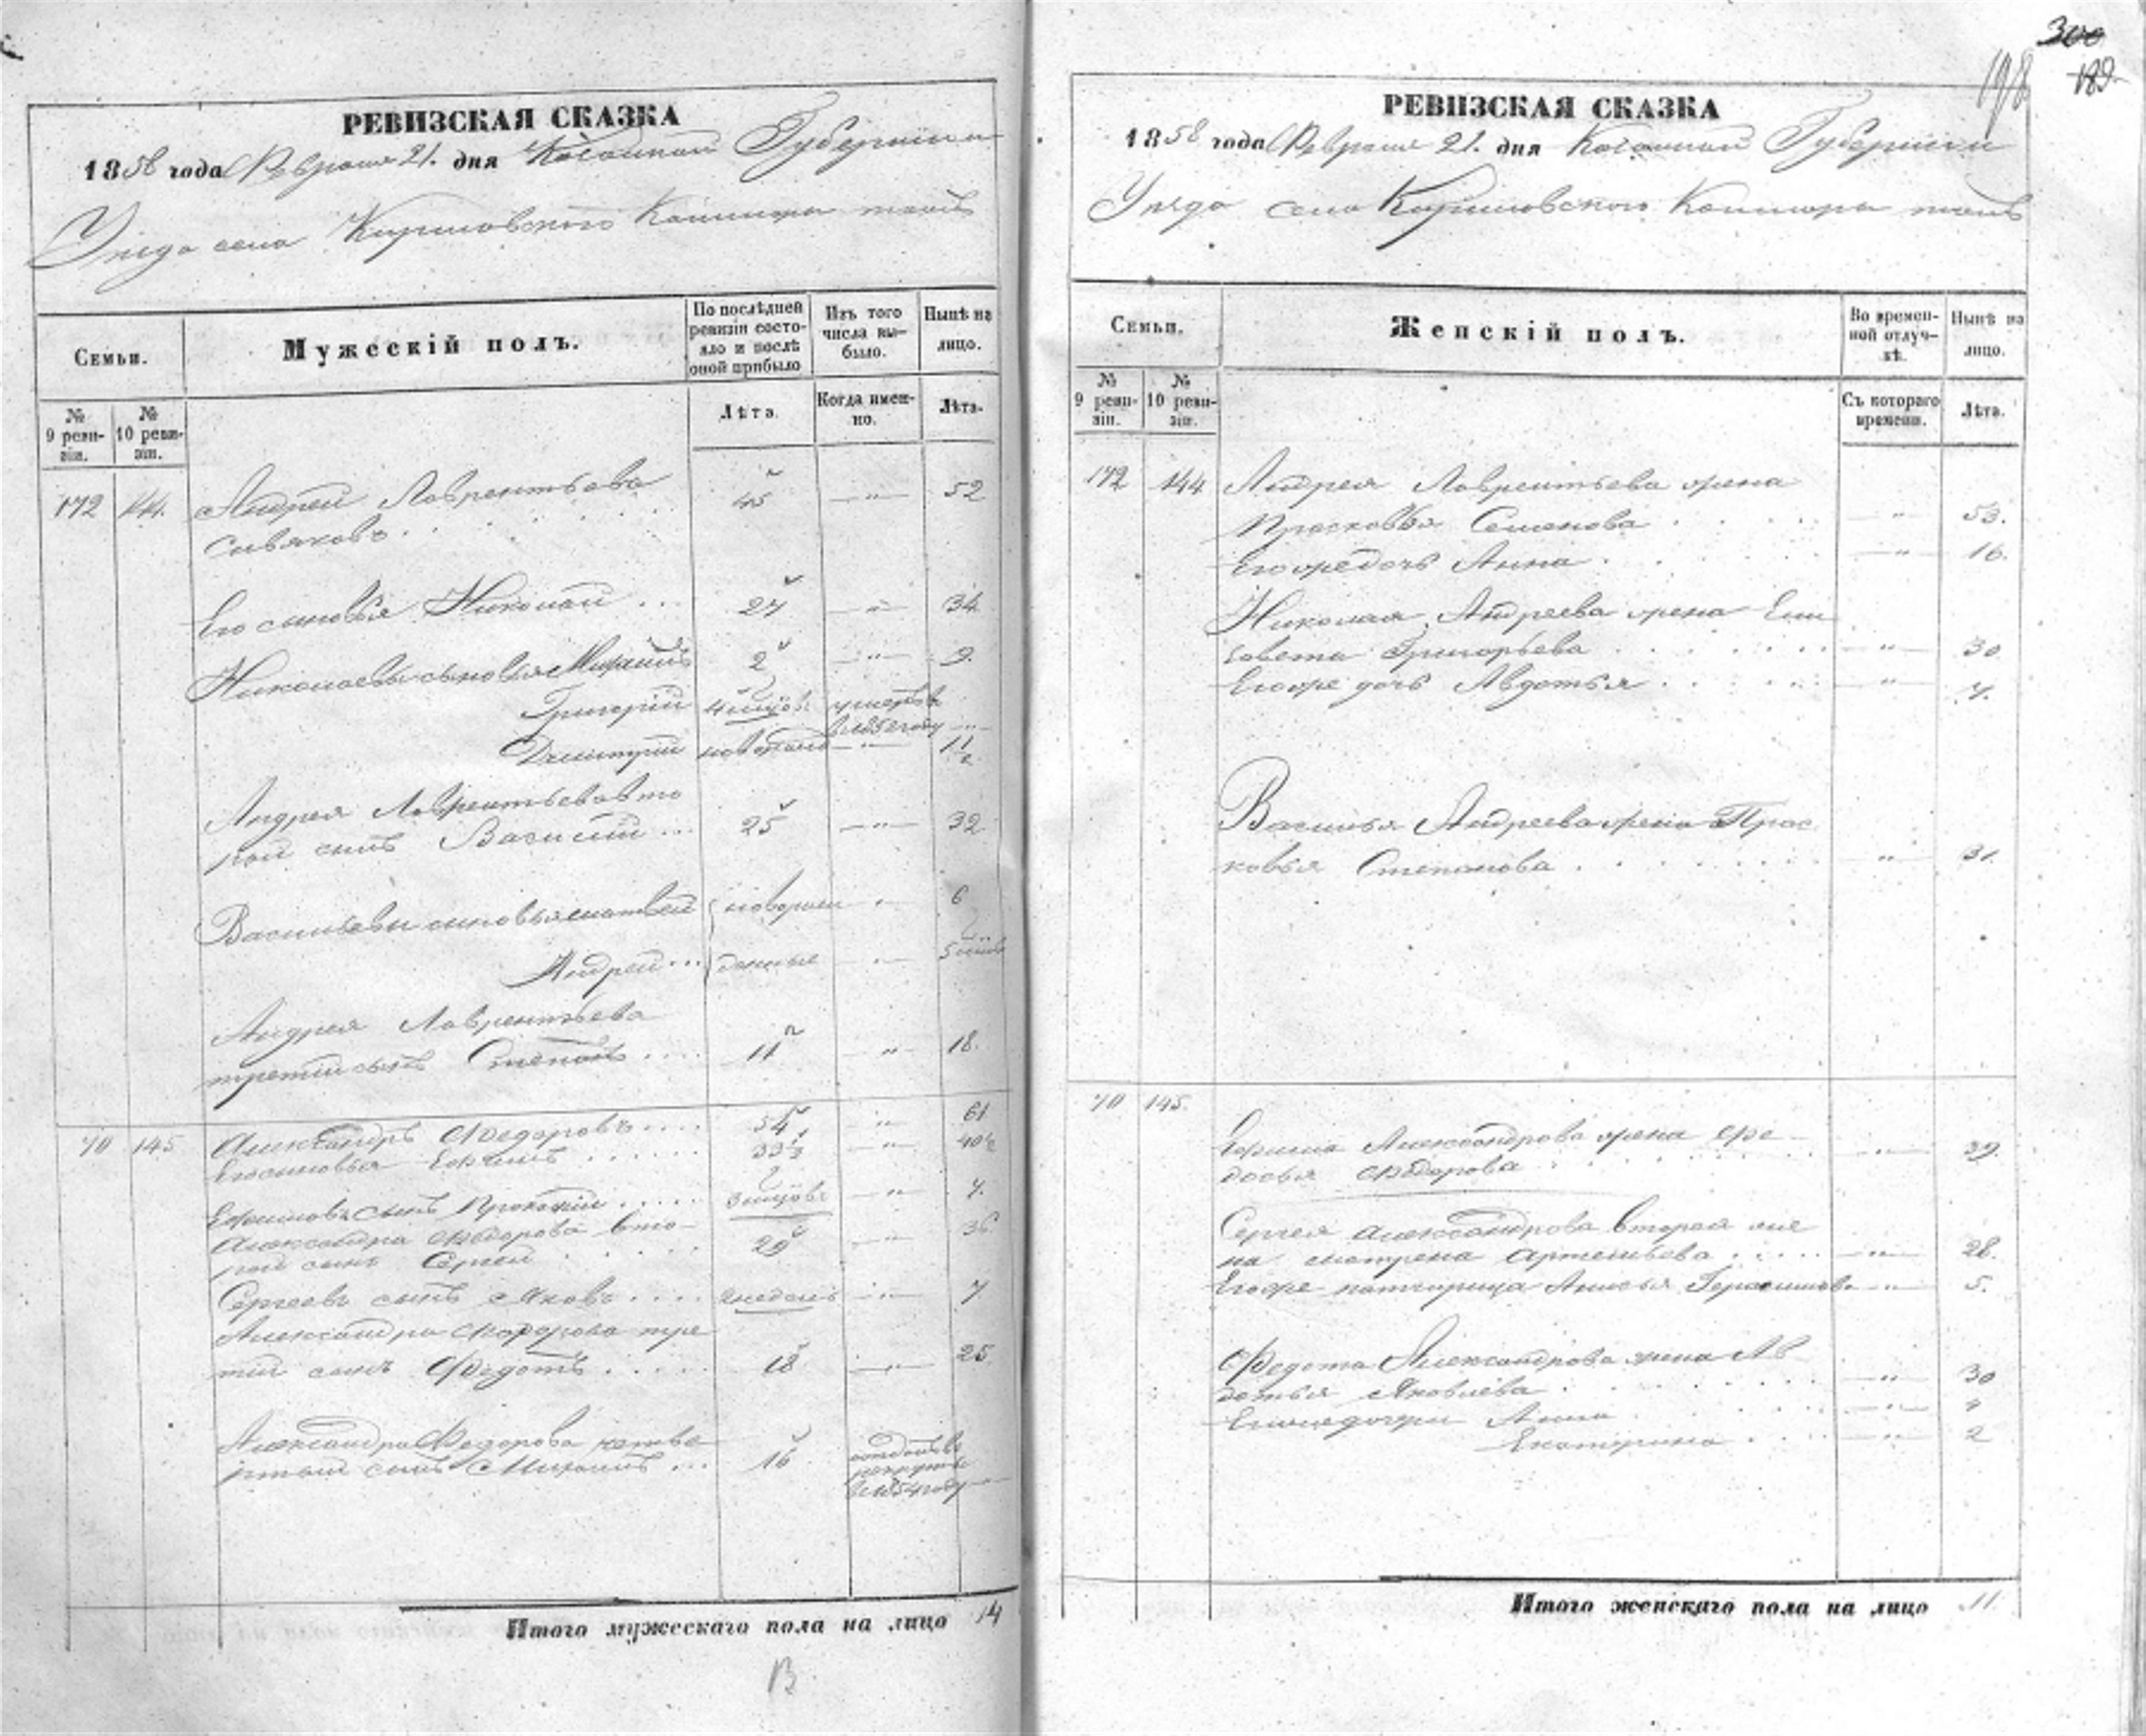 РЕВИЗСКАЯ СКАЗКА
1858 года Февраля 21. дня Губернии
Уезда села Кириловского
Семьи.
Мужескій полъ.
По послѣдней ревизіи состояло и послѣ оной прибыло
Изъ того числа выбыло.
Нынѣ на лицо.
№ 9 ревизіи.
№ 10 ревизіи.
Лѣта.
Когда именно.
Лѣта.
172 144. Андрей Лаврентьева 45 " 52
Сивяковъ
Его сыновья Николай 27 " 34
Николаевы сыновья Михаилъ 2 " 9.
Григорій 4 умеръ въ 1852 году
Дмитрій новорожденъ " 1 1/2
Андрея Лаврентьева вто
рой сынъ Василій 25 " 32
Васильевы сыновья Матвей новорож " 6
Андрей денные " 5
Андрея Лаврентьева
третий сынъ Степанъ 11 " 18.
70 145 Александръ Федоровъ 54 " 61
Его сыновья Ефимъ 33 1/2 " 40 1/2
Ефимовъ сынъ Прокофий " 7.
Александра Федорова вто-
рой сынъ Сергей 29 " 36
Сергеевъ сынъ Яковъ недель " 7
Александра Федорова тре
тий сынъ Федотъ 18 " 25
Александра Федорова четве
ртый сынъ Михаилъ 16 отданъ въ
рекруты
въ 1854 году
Итого мужескаго пола на лицо 14
В
300
189
198
РЕВИЗСКАЯ СКАЗКА
1858 года Февраля 21. дня Губернии
Уезда села Кириловского
Семьи.
Женскій полъ.
Во временной отлучкѣ.
Нынѣ на лицо.
№ 9 ревизіи.
№ 10 ревизіи.
Съ котораго времени.
Лѣта.
172 144 Андрея Лаврентьева жена
Прасковья Семенова " 53.
Его же дочь Анна " 16.
Николая Андреева жена Ели
савета Григорьева " 30
Его же дочь Авдотья " 7.
Василья Андреева жена Прас
ковья Степанова " 31
70 145.
Ефима Александрова жена Фе-
досья Федорова " 39.
Сергея Александрова вторая же
на Матрена Артемьева " 28.
Его же патчерица Анисья Герасимова " 5.
Федота Александрова жена Ав
дотья Яковлева " 30
Анна "
Екатерина " 2
Итого женскаго пола на лицо 11.